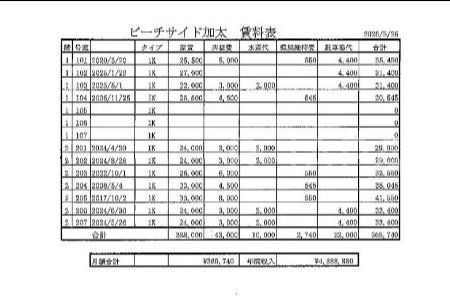 ピーチサイド加太 賃料表 2025/5/26
階 号室 タイプ 家賃 共益費 水道代 環境維持費 駐車場代 合計
1 101 2020/3/20 1K 25,500 5,000 550 4,400 35,450
1 102 2025/1/20 1K 27,000 4,400 31,400
1 103 2025/5/1 1K 22,000 3,000 2,000 4,400 31,400
1 104 1K 4,500 545
1 105 1K 0
1 106 1K 0
1 107 1K 0
2 201 2024/4/20 1K 24,000 3,000 2,000 29,000
2 202 2024/8/26 1K 24,000 3,000 2,000 29,000
2 203 2022/10/1 1K 26,000 6,000 550 32,550
2 204 1K 33,000 4,500 545 38,045
2 205 2017/10/2 1K 33,000 8,000 550 41,550
2 206 2024/6/30 1K 24,000 3,000 2,000 4,400 33,400
2 207 2024/5/26 1K 24,000 3,000 2,000 4,400 33,400
合計 43,000 10,000 2,740 22,000 365,740
月額合計 ¥365,740 年間収入 ¥4,388,880